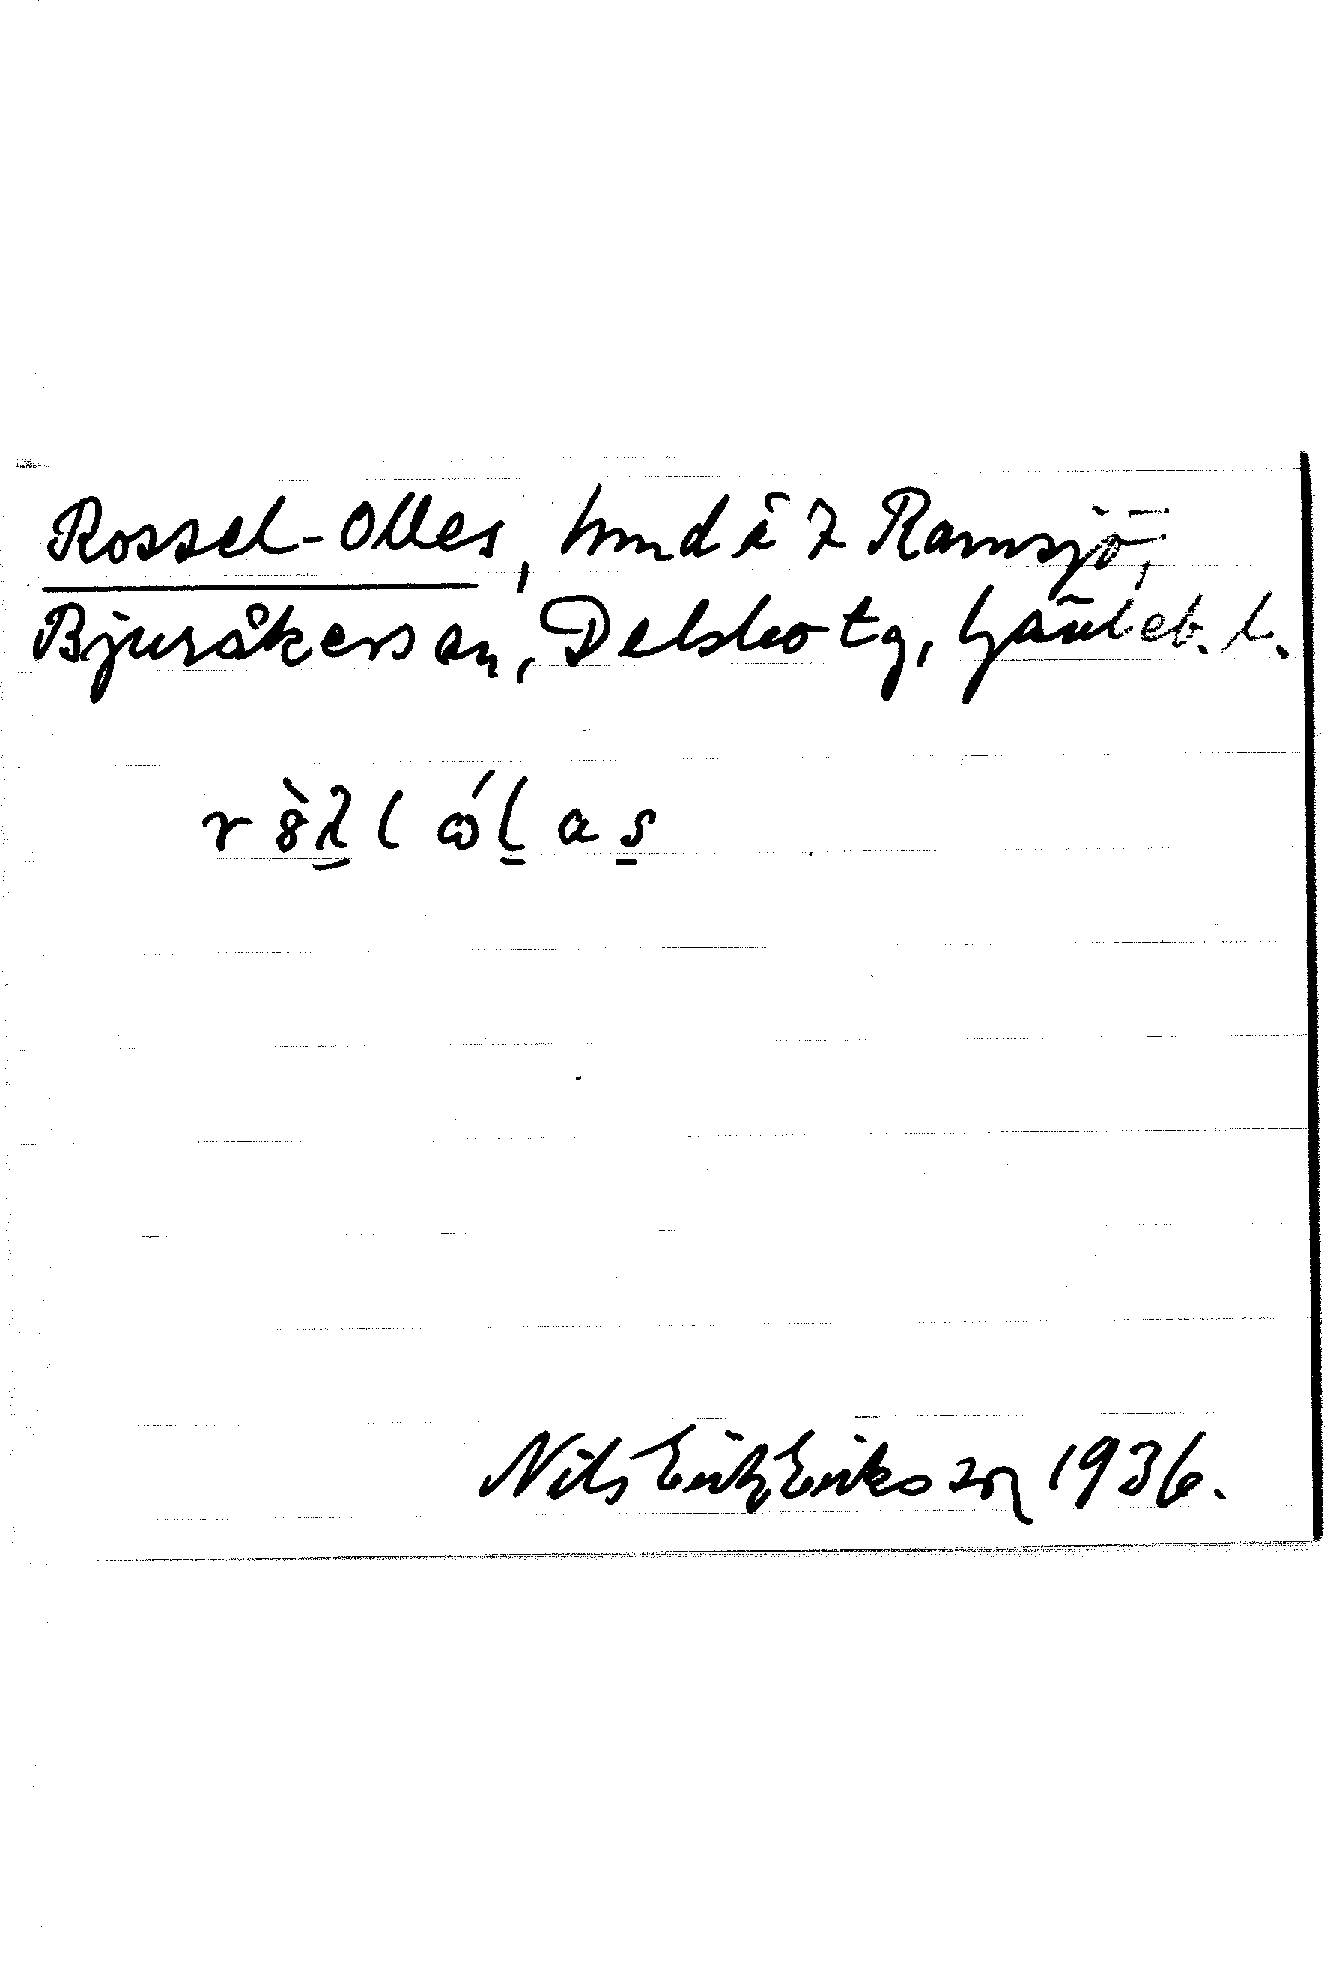 Rossel-Olles, hmd å 7 Ramsjö,
Bjuråkers sn, Delsbo tg, Gävleb. l.
Nils Erik Eriksson 1936.